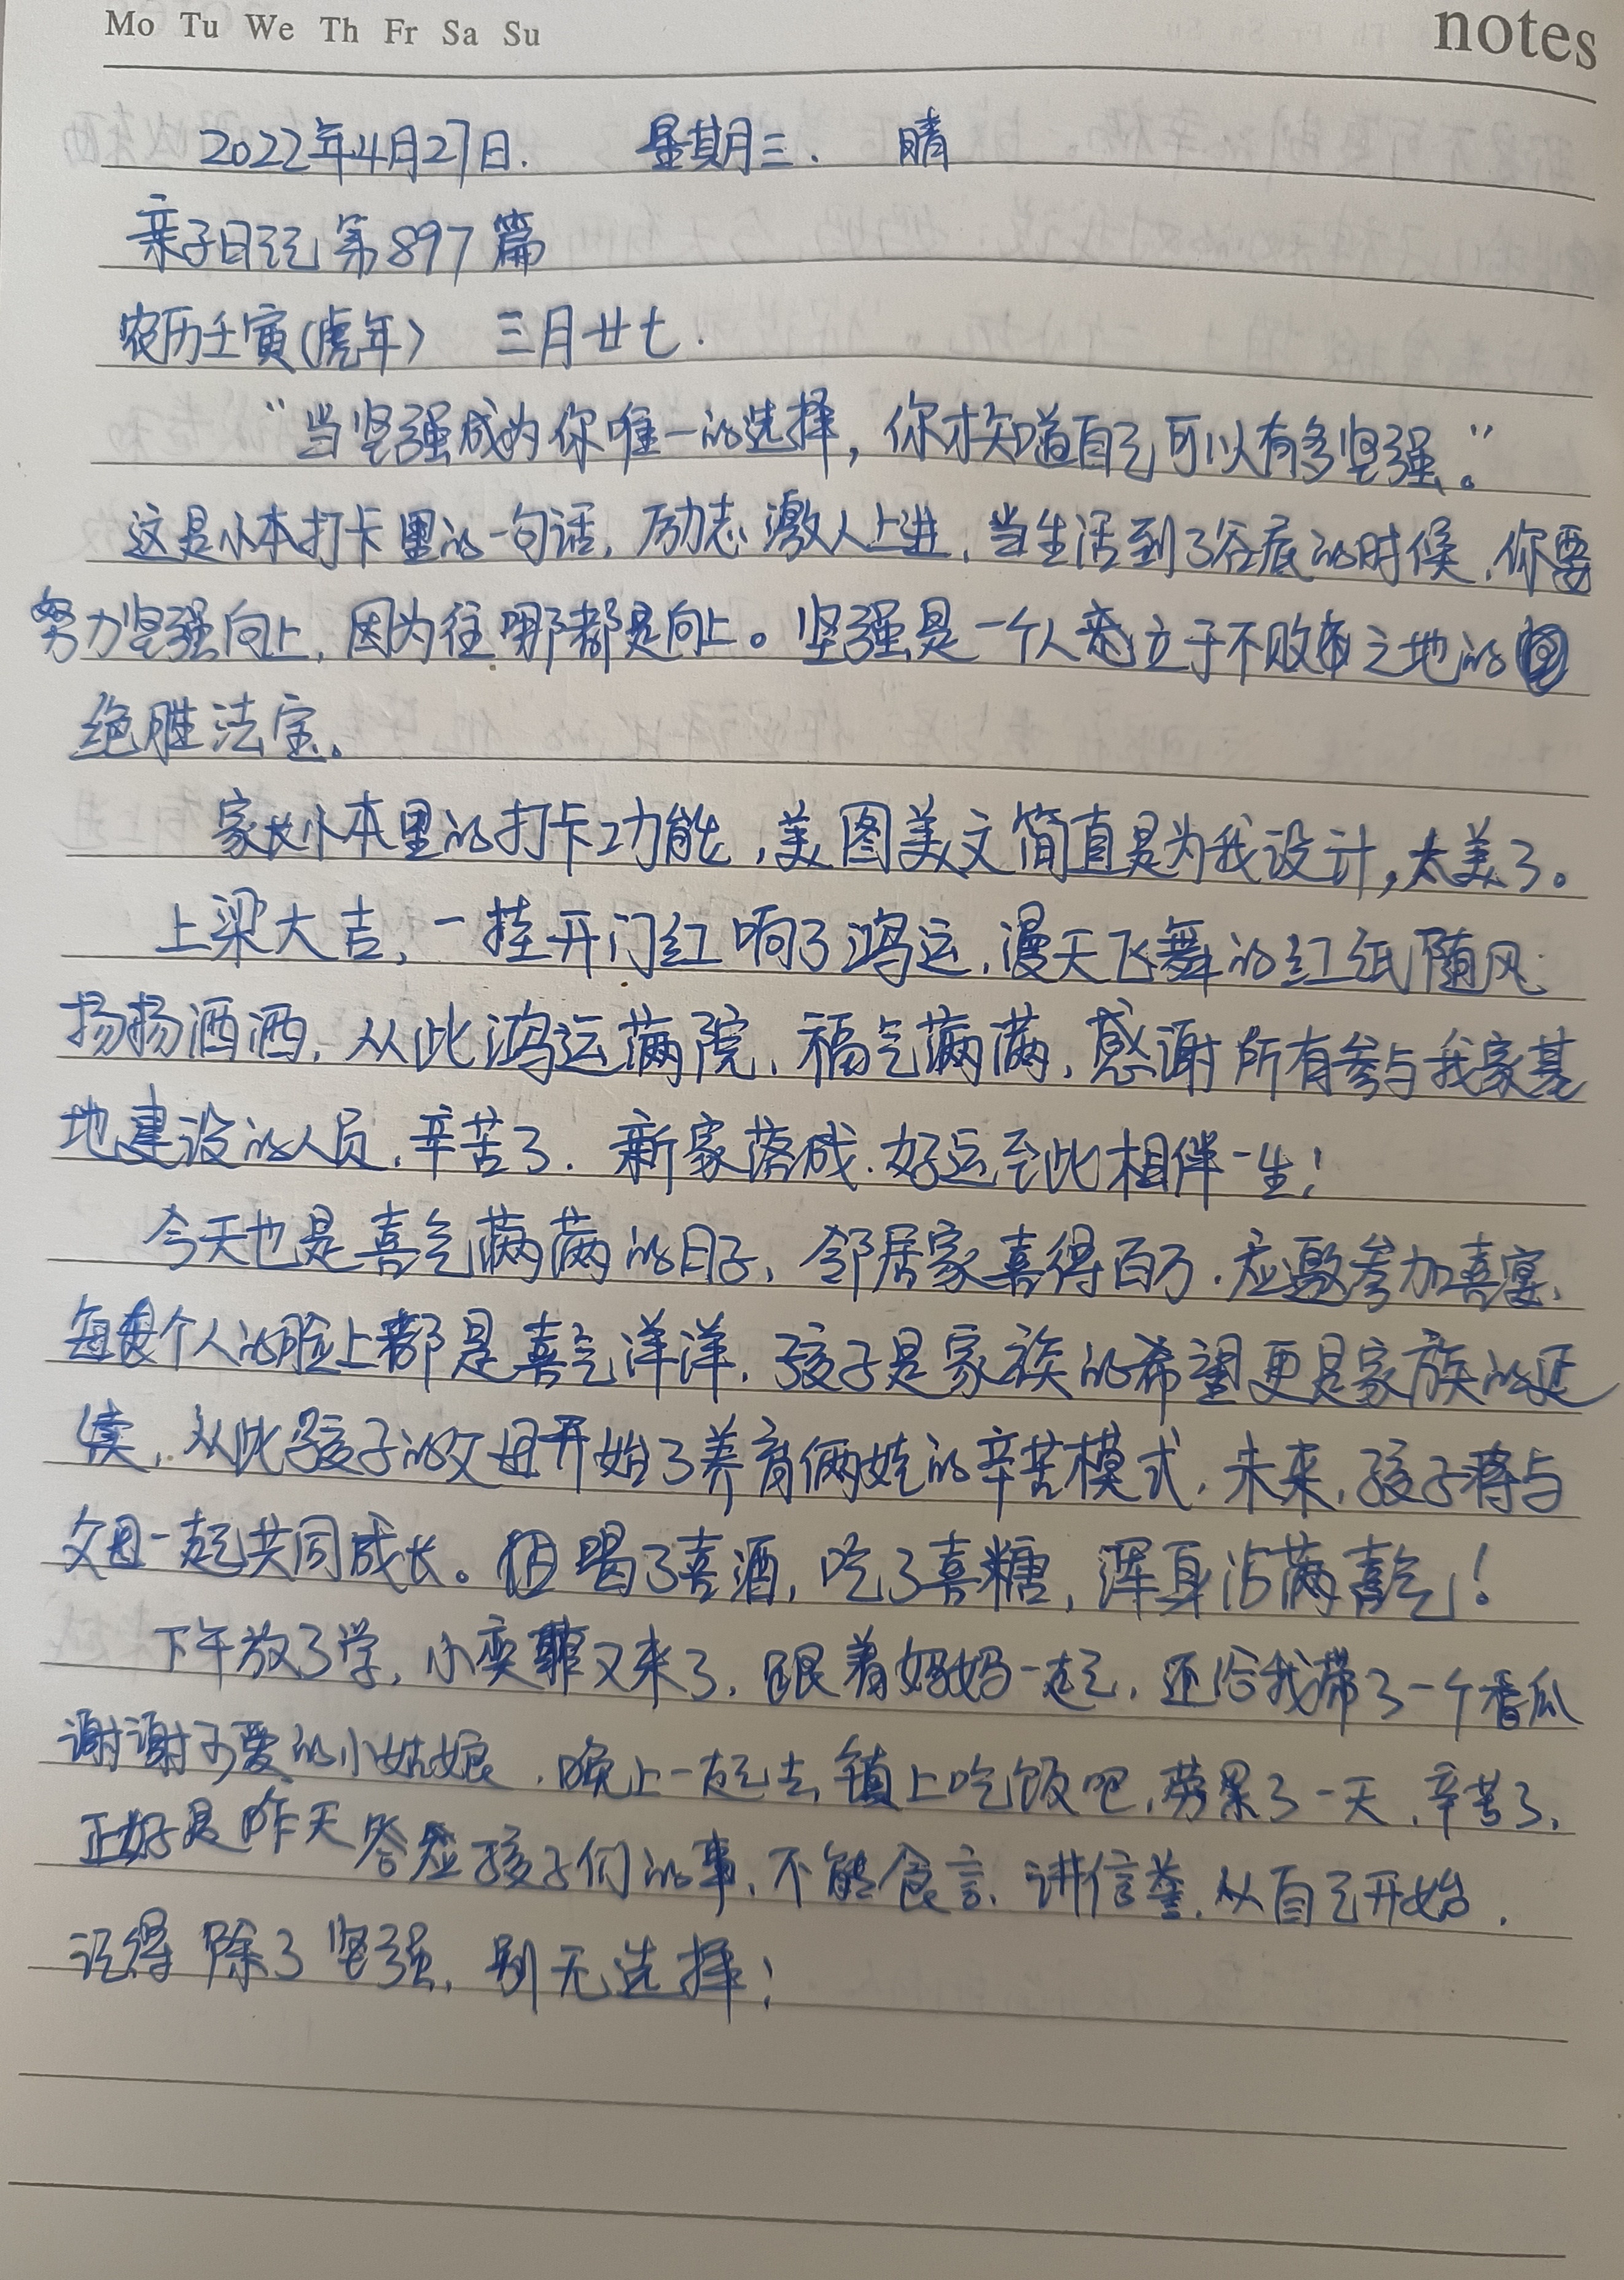 Mo Tu We Th Fr Sa Su
notes
2022年4月27日. 星期三. 晴
亲子日记第897篇
农历壬寅(虎年) 三月廿七.
“当坚强成为你唯一的选择，你才知道自己可以有多坚强。”
这是小本打卡里的一句话，励志激人上进，当生活到了谷底的时候，你要
努力坚强向上，因为往哪都是向上。坚强是一个人立于不败之地的
绝胜法宝。
家长小本里的打卡功能，美图美文简直是为我设计，太美了。
上梁大吉，一挂开门红响了鸿运，漫天飞舞的红纸随风
扬扬洒洒，从此鸿运满院，福气满满，感谢所有参与我家基
地建设的人员，辛苦了．新家落成．好运至此相伴一生！
今天也是喜气满满的日子，邻居家喜得百万．应邀参加喜宴，
每个人的脸上都是喜气洋洋，孩子是家族的希望更是家族的延
续，从此孩子的父母开始了养育俩娃的辛苦模式，未来，孩子将与
父母一起共同成长。喝了喜酒，吃了喜糖，浑身沾满喜气！
下午放了学，小奕菲又来了，跟着妈妈一起，还给我带了一个香瓜
谢谢可爱的小姑娘，晚上一起去镇上吃饭吧，劳累了一天，辛苦了，
正好是昨天答应孩子们的事，不能食言，讲信誉，从自己开始．
记得除了坚强，别无选择！